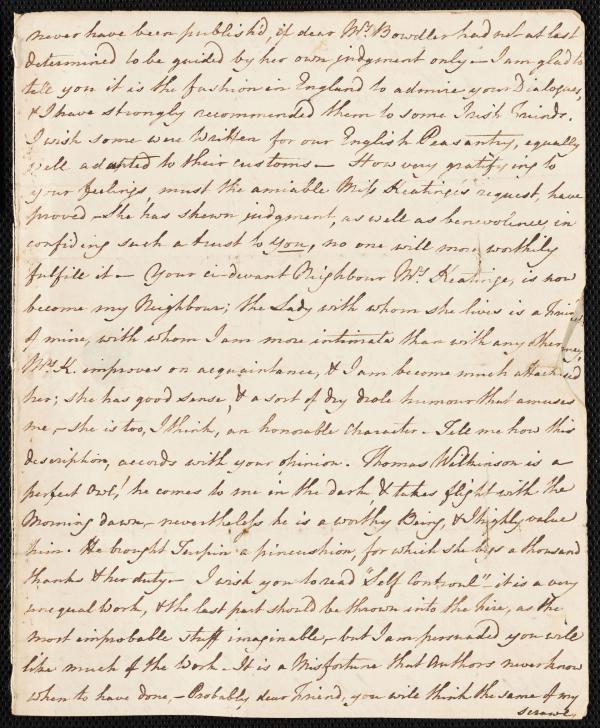 never have been publish'd, if dear Mrs Bowdler had not at last
determined to be guided by her own judgment only – I am glad to
tell you it is the fashion in England to admire your Dialogues,
& I have strongly recommended them to some Irish Friends.
I wish some were written for our English Peasantry, equally
well adapted to their customs – How very gratifying to
your feelings must the amiable Miss Keatinge's request, have
proved – she has shewn judgment, as well as benevolence, in
confiding such a trust to you, no one will more worthily
fulfile it – Your ci-devant Neighbour Mrs Keatinge, is now
become my Neighbour; the Lady with whom she lives is a Friend
of mine, with whom I am more intimate than with any other
Mrs K. improves on acquaintance, & I am become much attached
her; she has good sense, & a sort of dry drole humour that amuses
me, – she is too, I think, an honorable Character – Tell me how this
description, accords with your opinion. Thomas Wilkinson is a
perfect Owl! he comes to me in the dark, & takes flight with the
Morning dawn, – nevertheless he is a worthy Being, & I highly value
him. He brought Turpin a pincushion, for which she begs a thousand
thanks & her duty – I wish you to read "Self Controul" – it is a very
unequal Work, & the last part should be thrown into the fire, as the
most improbable stuff imaginable, – but I am persuaded you will
like much of the Work – It is a Misfortune that Authors never know
when to have done, – Probably dear Friend, you will think the same of my
scrawl,